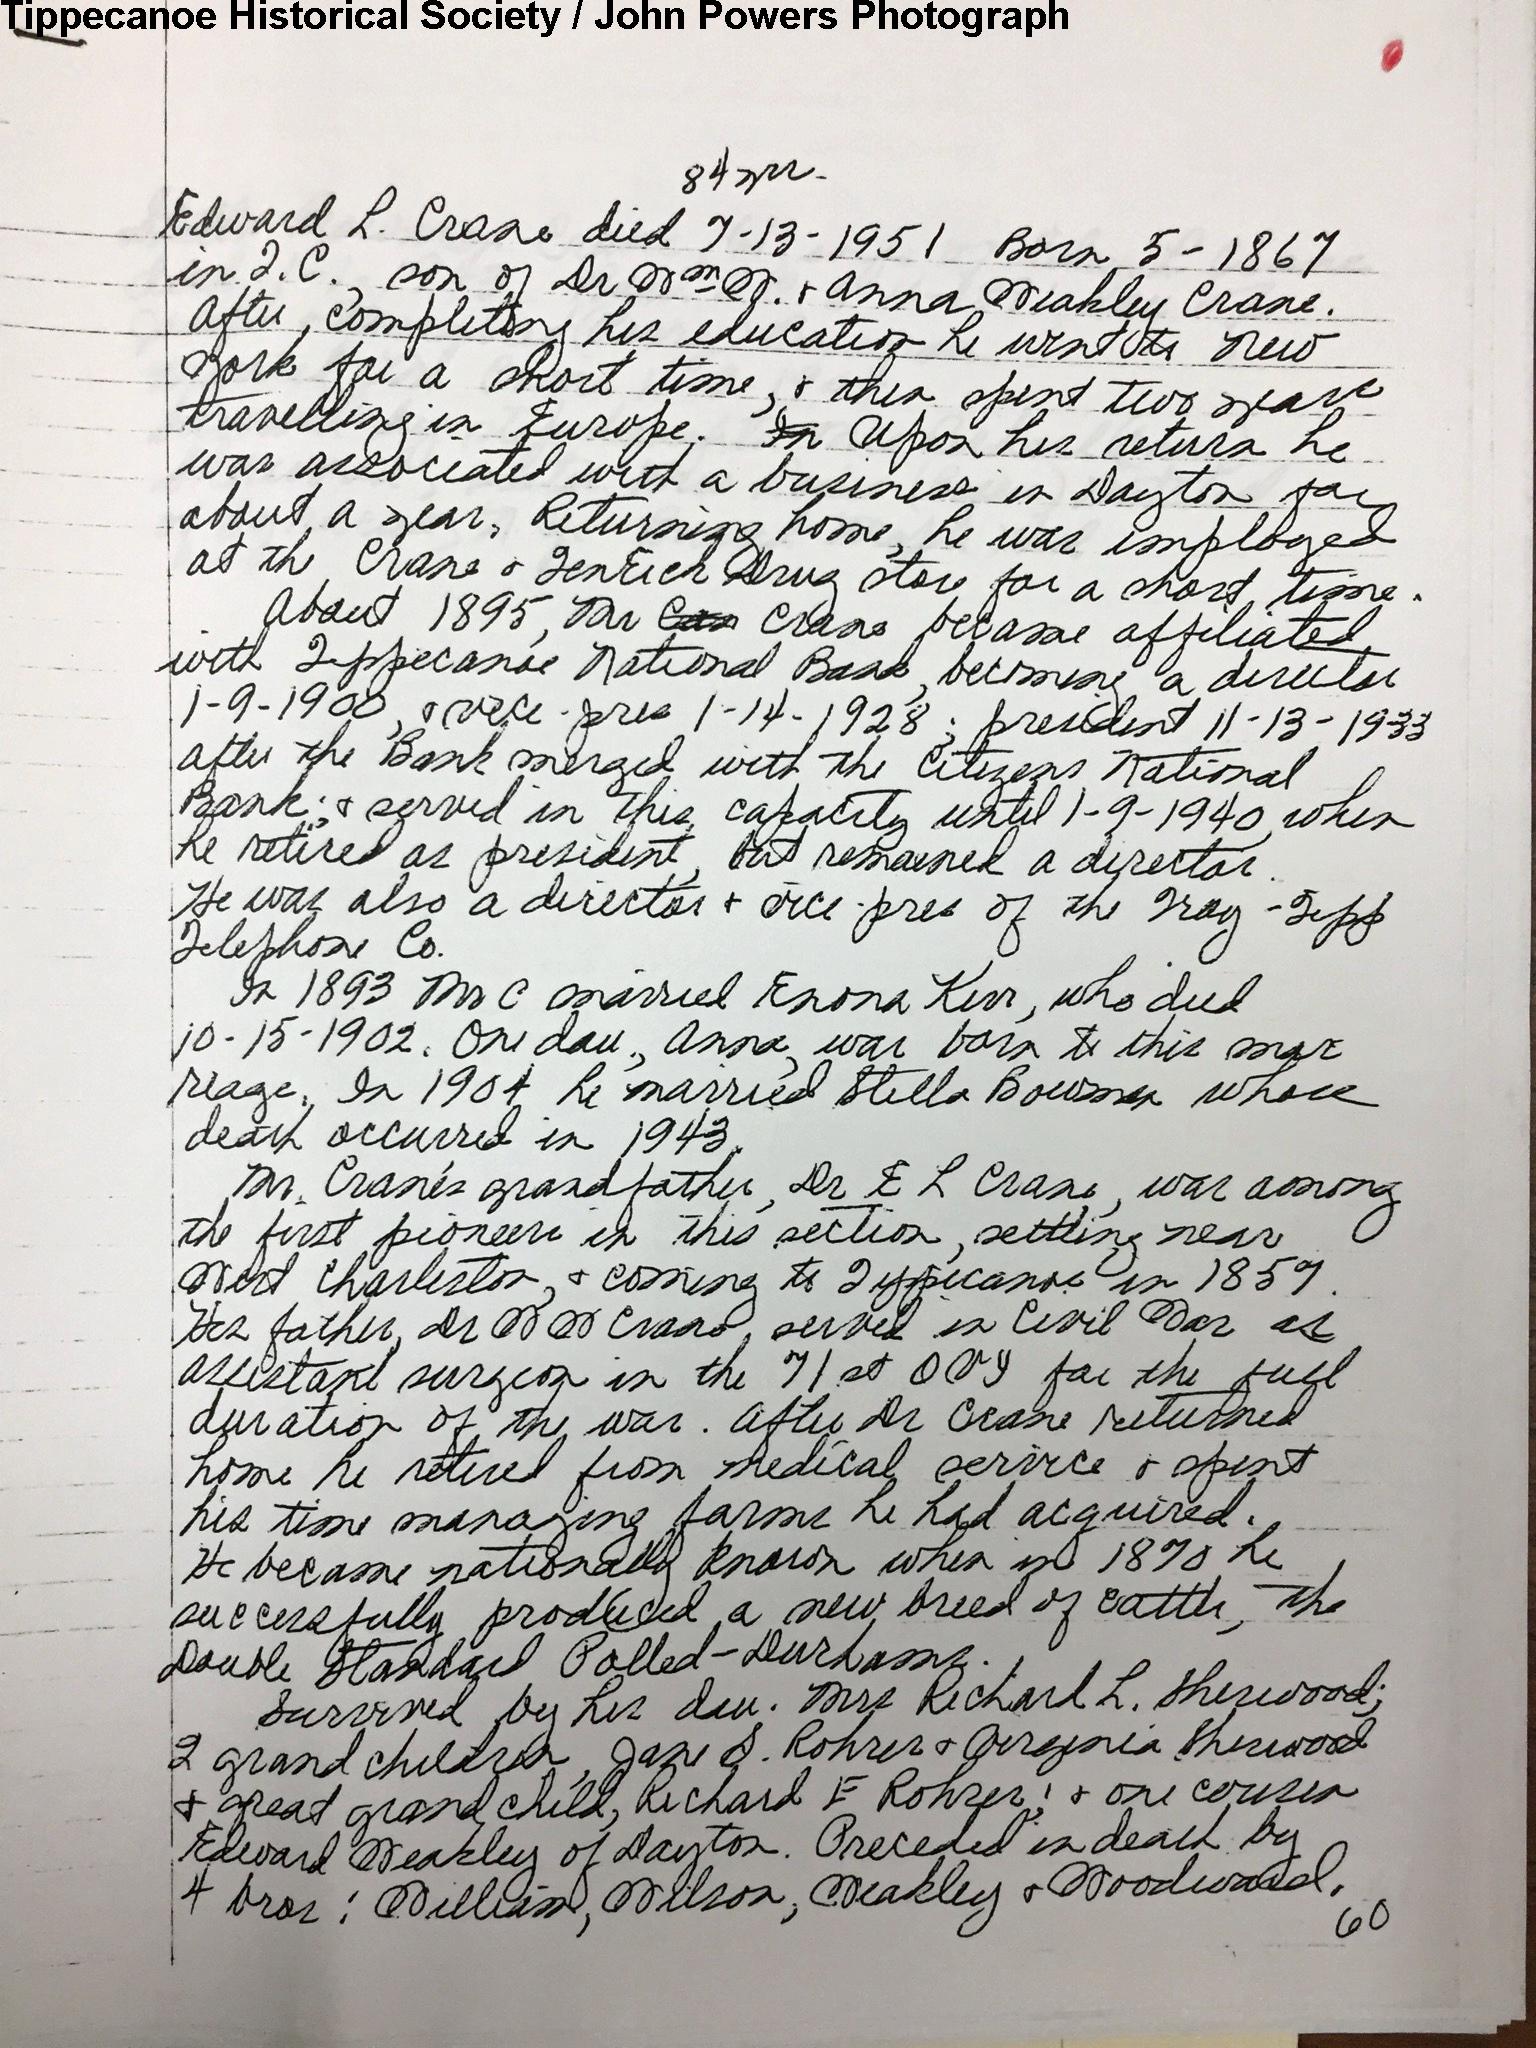 Tippecanoe Historical Society / John Powers Photograph
84 yrs.
Edward L. Crane died 7-13-1951 Born 5-1867
in T.C., son of Dr Wm W. & Anna Weakley Crane.
After completing his education he went to New
York for a short time, & then spent two years
travelling in Europe. In Upon his return he
was associated with a business in Dayton for
about a year. Returning home, he was employed
at the Crane & TenEick Drug store for a short time.
About 1895, Mr Cran Crane became affiliated
with Tippecanoe National Bank, becoming a director
1-9-1900, & vice-pres 1-14-1928; president 11-13-1933
after the Bank merged with the Citizens National
Bank; & served in this capacity until 1-9-1940 when
he retired as president, but remained a director.
He was also a director & vice-pres of the Troy-Tipp
Telephone Co.
In 1893 Mr C married Enona Kerr, who died
10-15-1902. One dau., Anna, was born to this mar
riage. In 1904 he married Stella Bowman whose
death occurred in 1943.
Mr. Crane's grandfather, Dr E L Crane, was among
the first pioneers in this section, settling near
West Charleston, & coming to Tippecanoe in 1857.
His father, Dr W W Crane, served in Civil War as
assistant surgeon in the 71st OVI for the full
duration of the war. After Dr Crane returned
home he retired from medical service & spent
his time managing farms he had acquired.
He became nationally known when in 1870 he
successfully produced a new breed of cattle, the
Double Standard Polled-Durhams.
Survived by his dau. Mrs Richard L. Sherwood;
2 grand children, Jane S. Rohrer & Virginia Sherwood
& great grand child, Richard E Rohrer; & one cousin
Edward Weakley of Dayton. Preceded in death by
4 bros: William, Wilson, Weakley & Woodward.
60